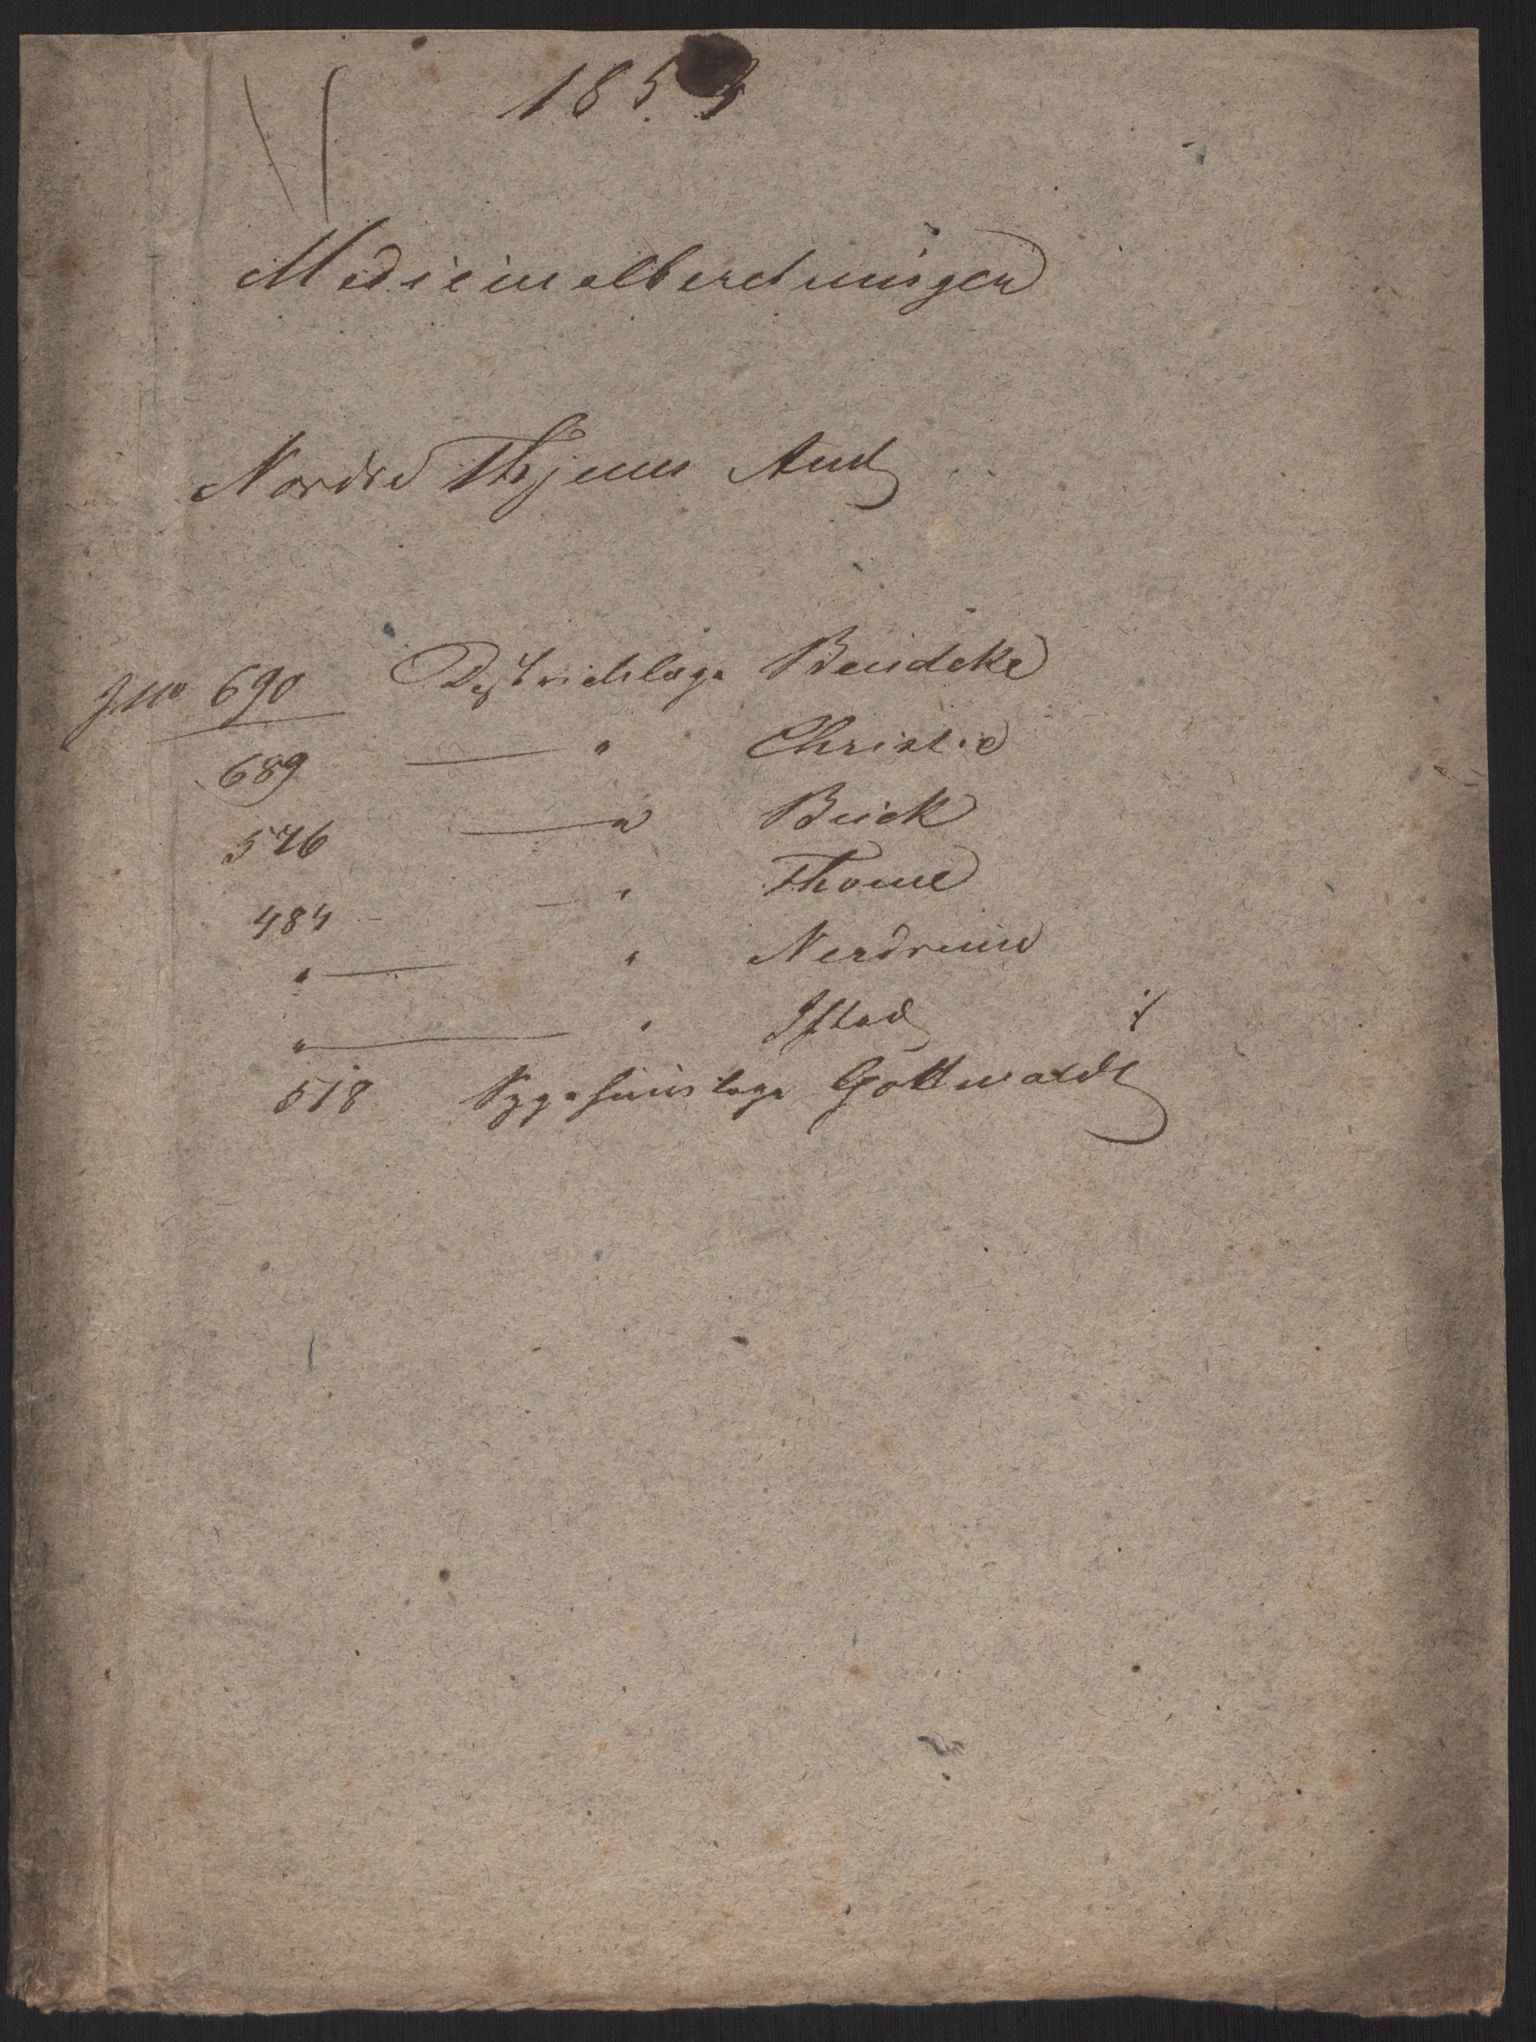 185
Medicinalberetningen
Nordre Thjems Amt
J.No 690 Districtslæge Bendeke
689 — " Christie
576 — " Buck
484 — " Thome
" — " Nerdrum
" — " Istad
518 Sygehuuslæge Gottwaldt